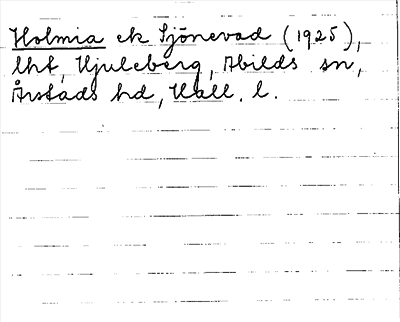 Holmia ek Sjönevad (1925),
lht, Hjuleberg, Abilds sn,
Årstads hd, Hall. l.